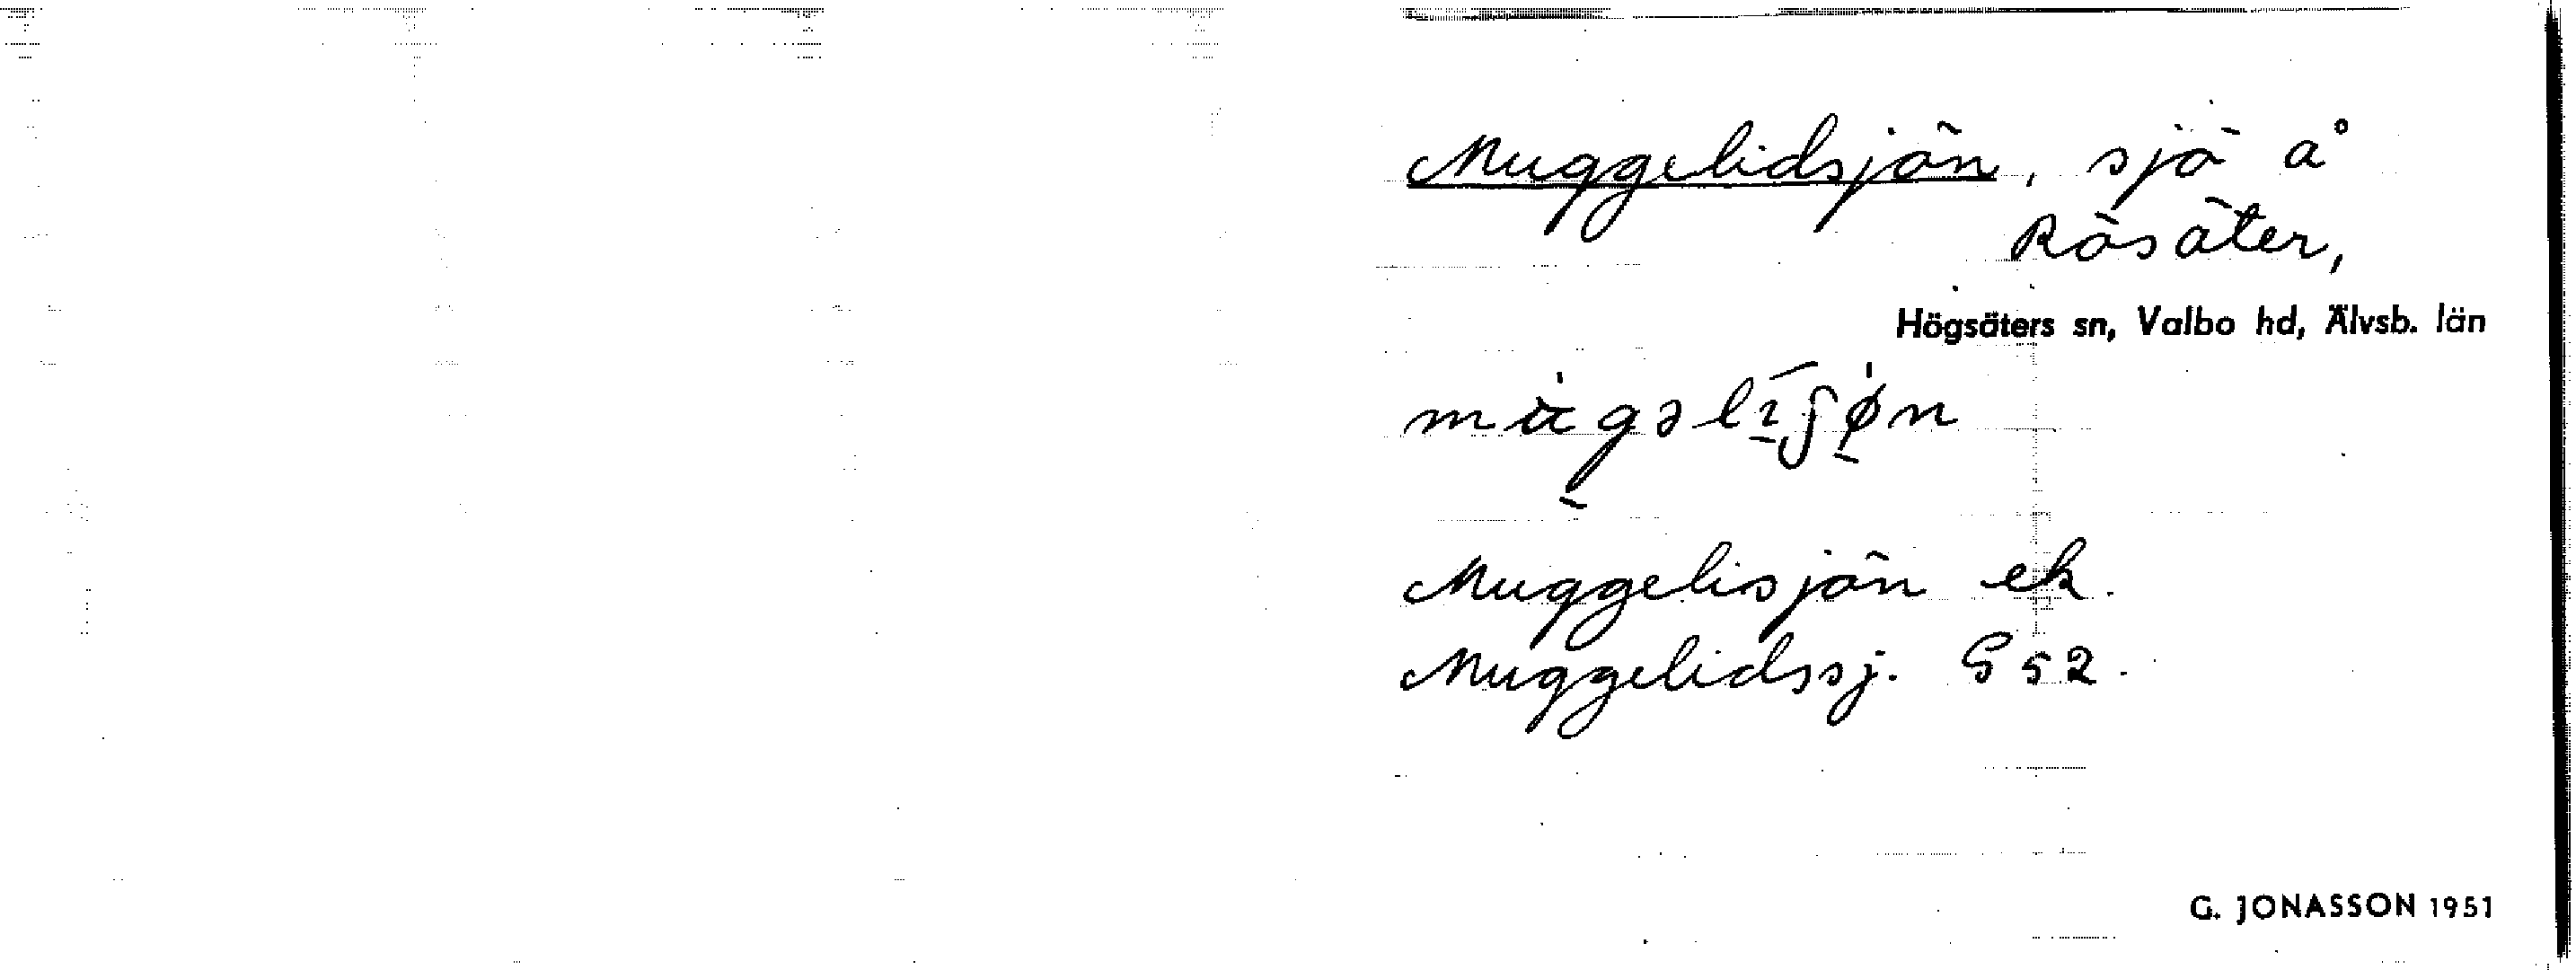 Muggelidsjön, sjö å
Rösäter,
Högsäters sn, Valbo hd, Älvsb. län
Muggelisjön ek.
Muggelidssj. G 52.
G. JONASSON 1951